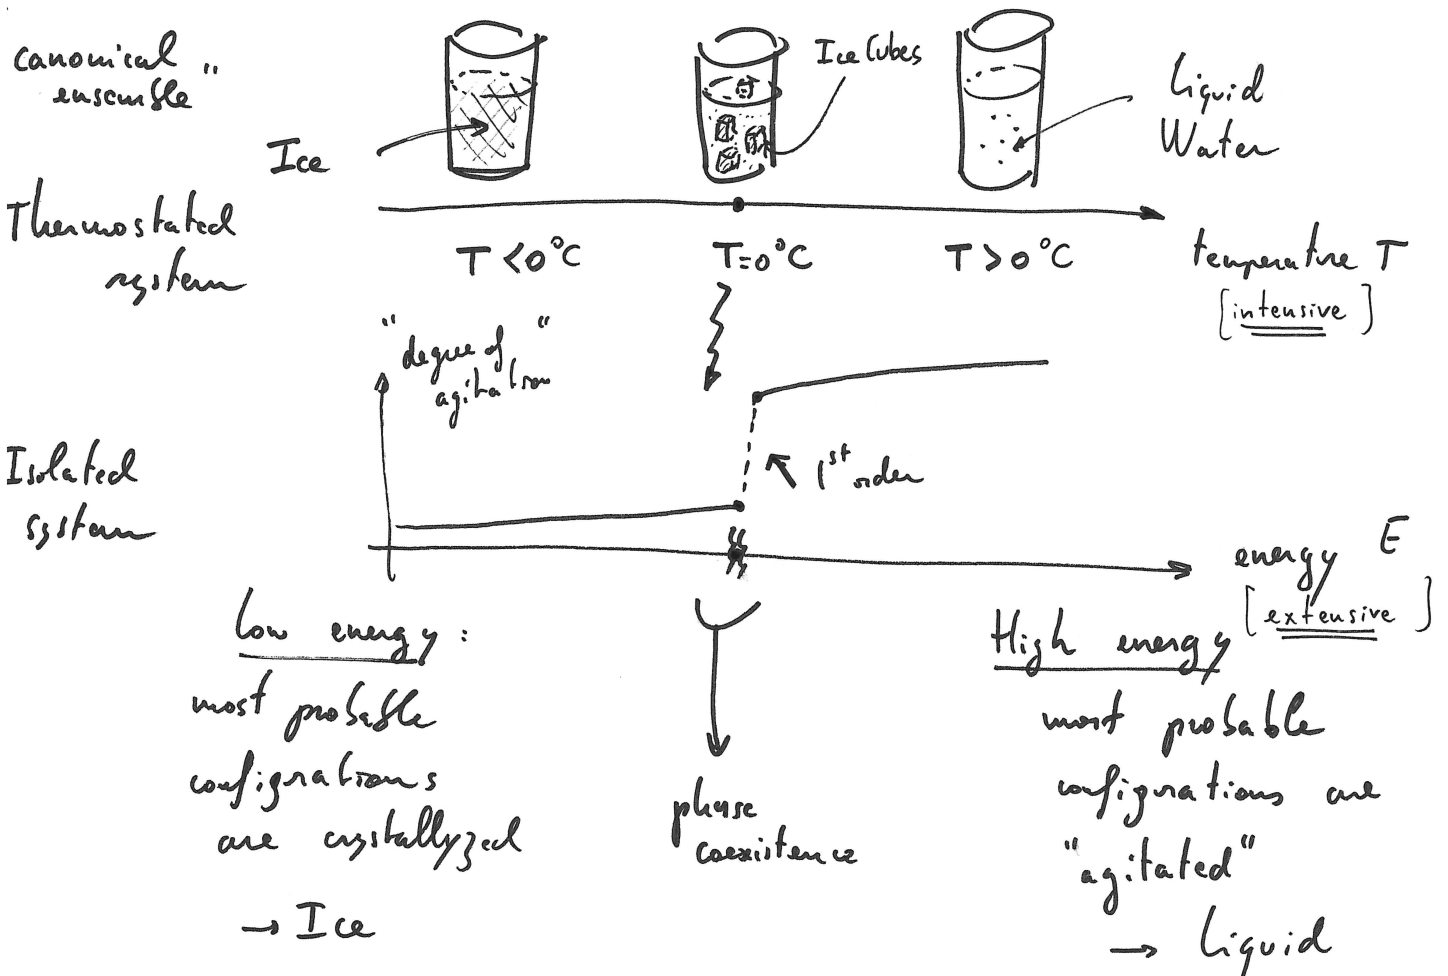 canonical "
ensemble
Ice
Ice Cubes
Liquid
Water
Thermostated
system
T < 0°C
T=0°C
T > 0°C
temperature T
[intensive]
"degree of
agitation"
Isolated
system
1st order
energy E
[extensive]
Low energy:
most probable
configurations
are crystallyzed
→ Ice
phase
coexistence
High energy
most probable
configurations are
"agitated"
→ Liquid